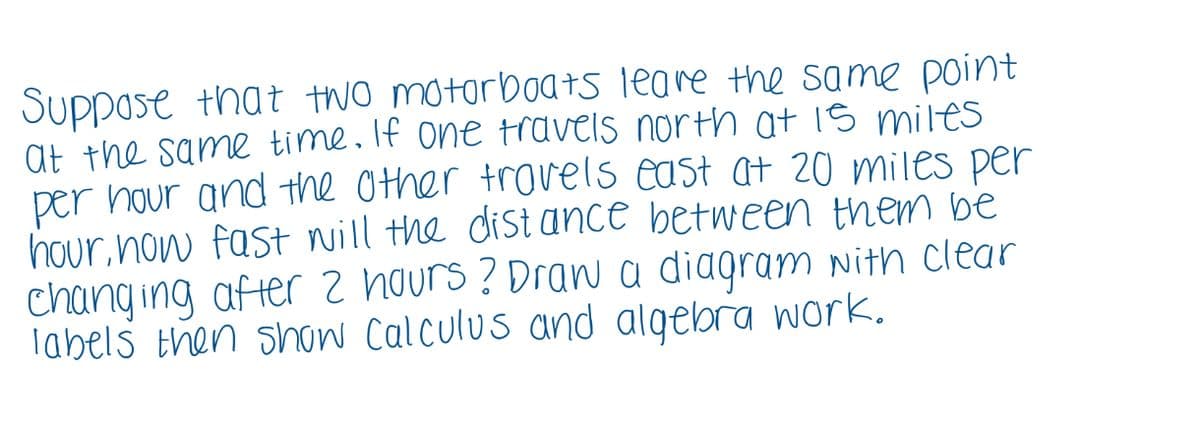 Suppose that two motorboats leave the same point
at the same time. If one travels north at 15 miles
per hour and the other travels east at 20 miles per
hour, how fast will the distance between them be
changing after 2 hours? Draw a diagram with clear
labels then show Calculus and algebra work.